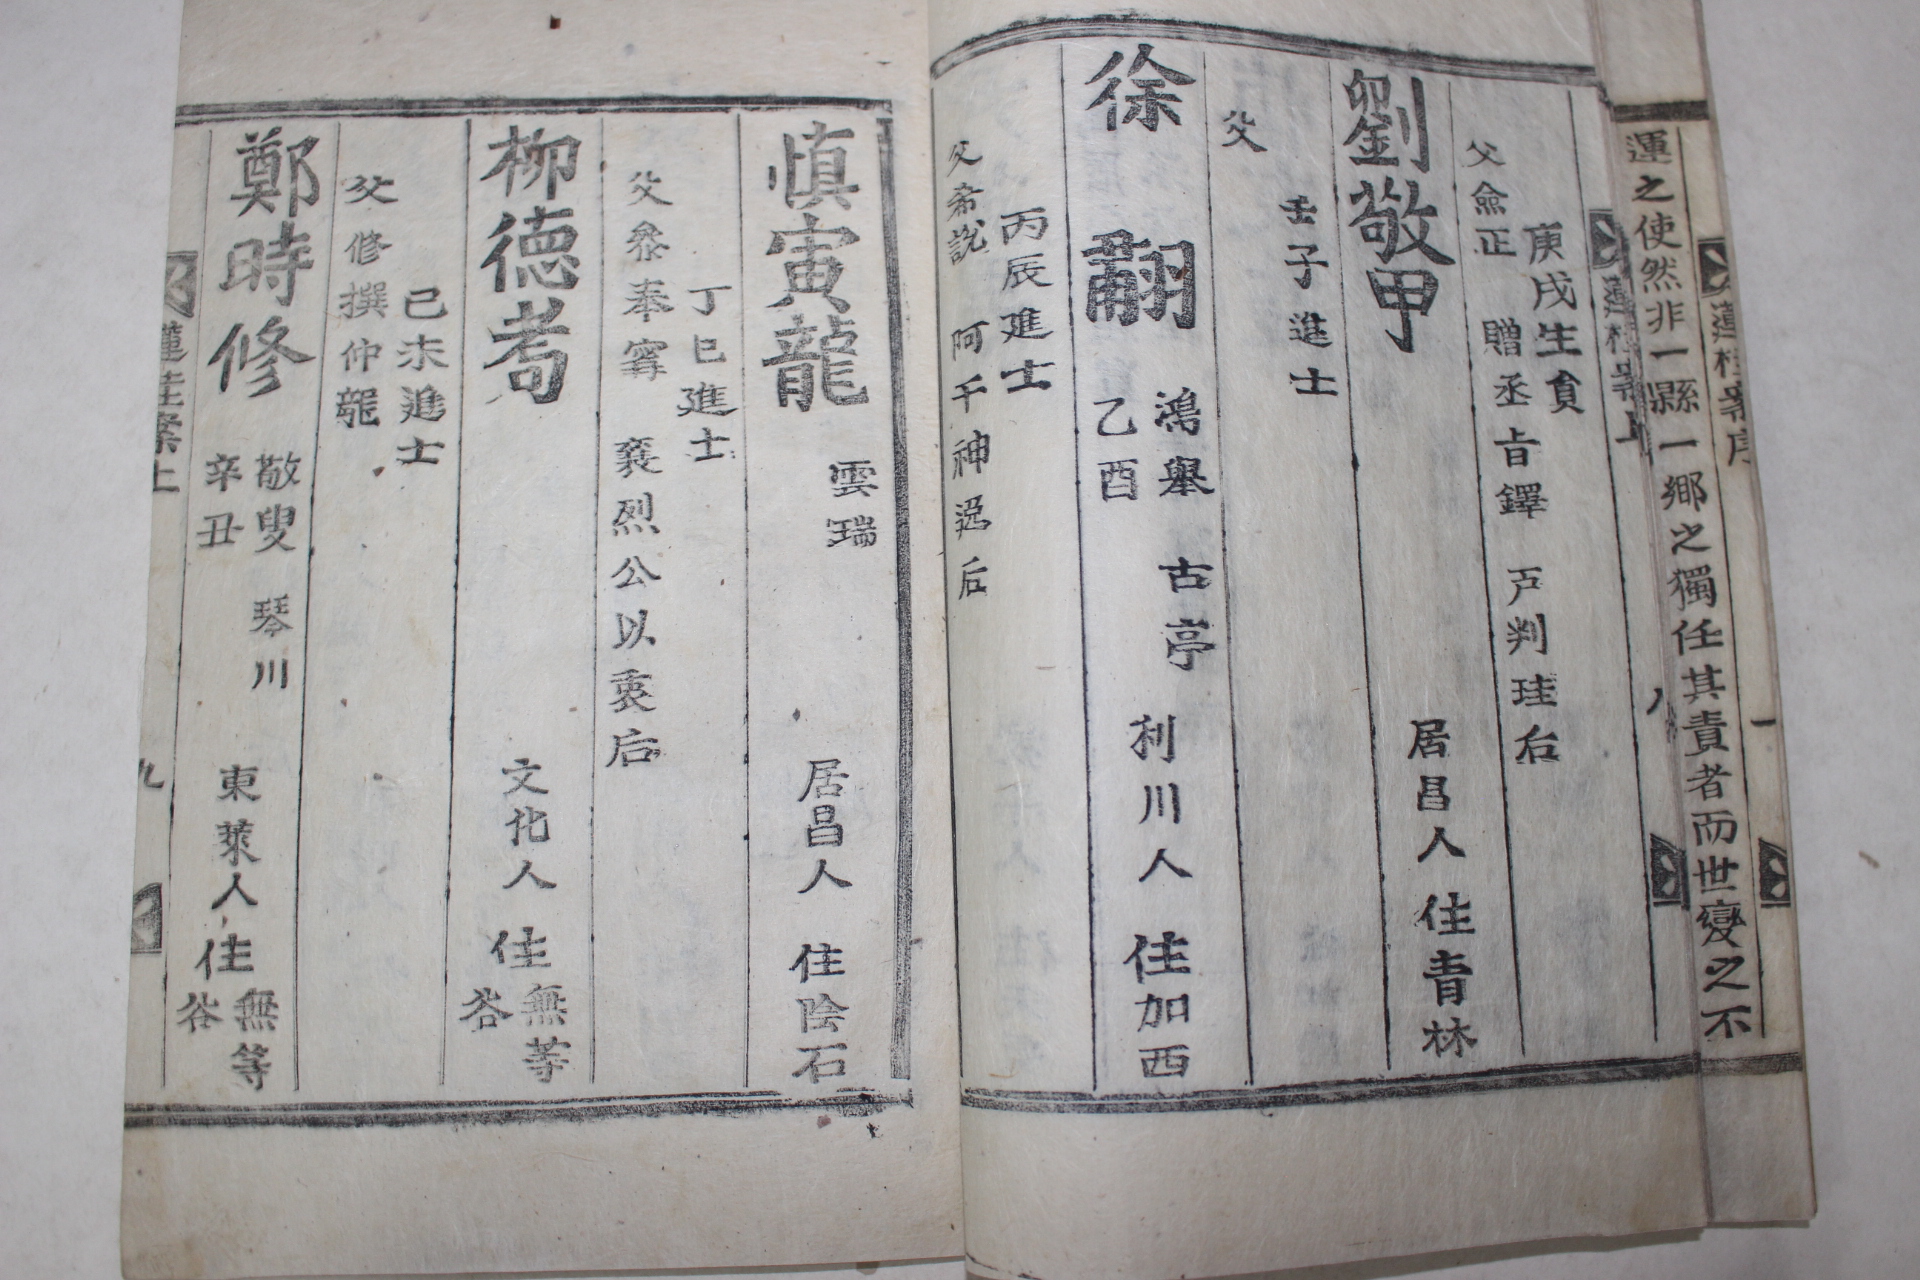 蓮桂案序
一
運之使然非一縣一鄉之獨任其責者而世變之不
蓮桂案上
八
庚戌生員
父僉正 贈丞旨鐸 戶判珪后
劉敬甲 居昌人 住青林
壬子進士
父
徐翩 鴻擧 古亭 乙酉 利川人 住加西
丙辰進士
父希說 阿干神逸后
愼寅龍 雲瑞 居昌人 住陰石
丁巳進士
父叅奉寗 襄烈公以衷后
柳德耈 文化人 住無等谷
己未進士
父修撰仲龍
鄭時修 敬叟 琴川 辛丑 東萊人 住無等谷
蓮桂案上
九